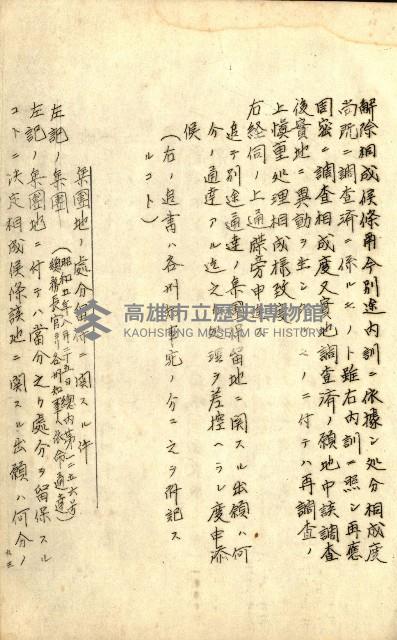 解除相成候條爾今別途内訓ニ依據シ処分相成度
尚既ニ調査済ニ係ルモノト雖右内訓ニ照シ再應
固密ニ調査相成度又實地調査済ノ願地中該調査
後實地ニ異動ヲ生シ ニ付テハ再調査ノ
上慎重処理相成様致
右経伺ノ上通牒旁申進
追テ別途通達ノ集團保留地ニ関スル出願ハ何
分ノ通達アル迄之 処理ヲ差控ヘラレ度申添
候
(右ノ追書ハ各州 事宛ノ分ニ之ヲ附記ス
ルコト)
集團地ノ處分 件ニ関スル件
(昭和五年 月二十五日總内第一二五六号
總務長官ヨリ各州知事 依命通達)
左記ノ集團
左記ノ集團地ニ付テハ當分之カ處分ヲ留保スル
コトニ決定相成候條該地ニ関スル出願ハ何分ノ
高雄市立歷史博物館
KAOHSIUNG MUSEUM OF HISTORY